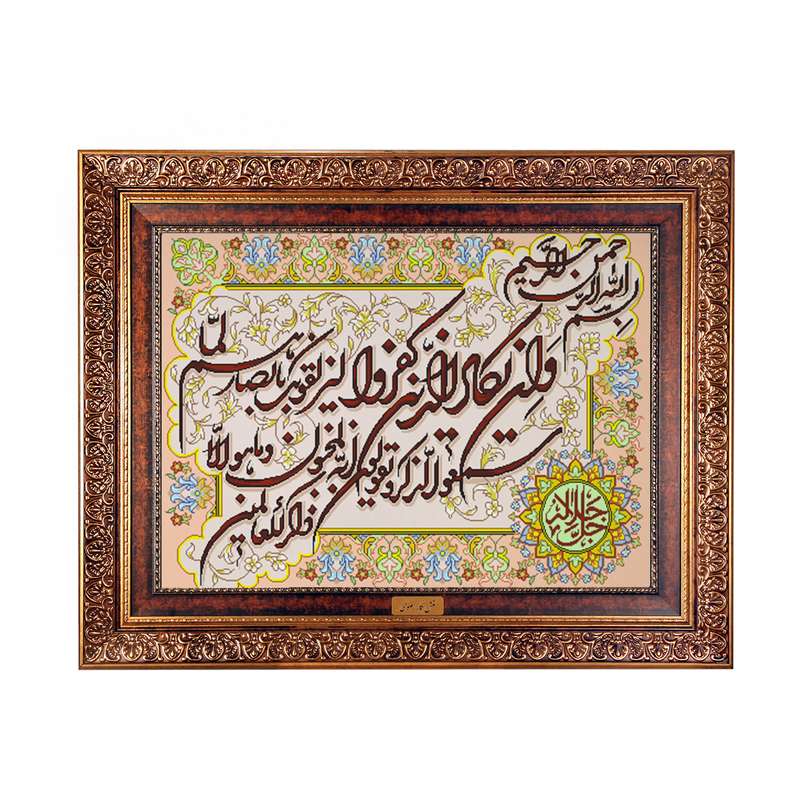 بسم الله الرحمن الرحیم
وان یکاد الذین کفروا لیزلقونک بابصارهم لمّا
سمعوا الذکر و یقولون انه لمجنون وما هو الّا
ذکر للعالمین
جل جلاله